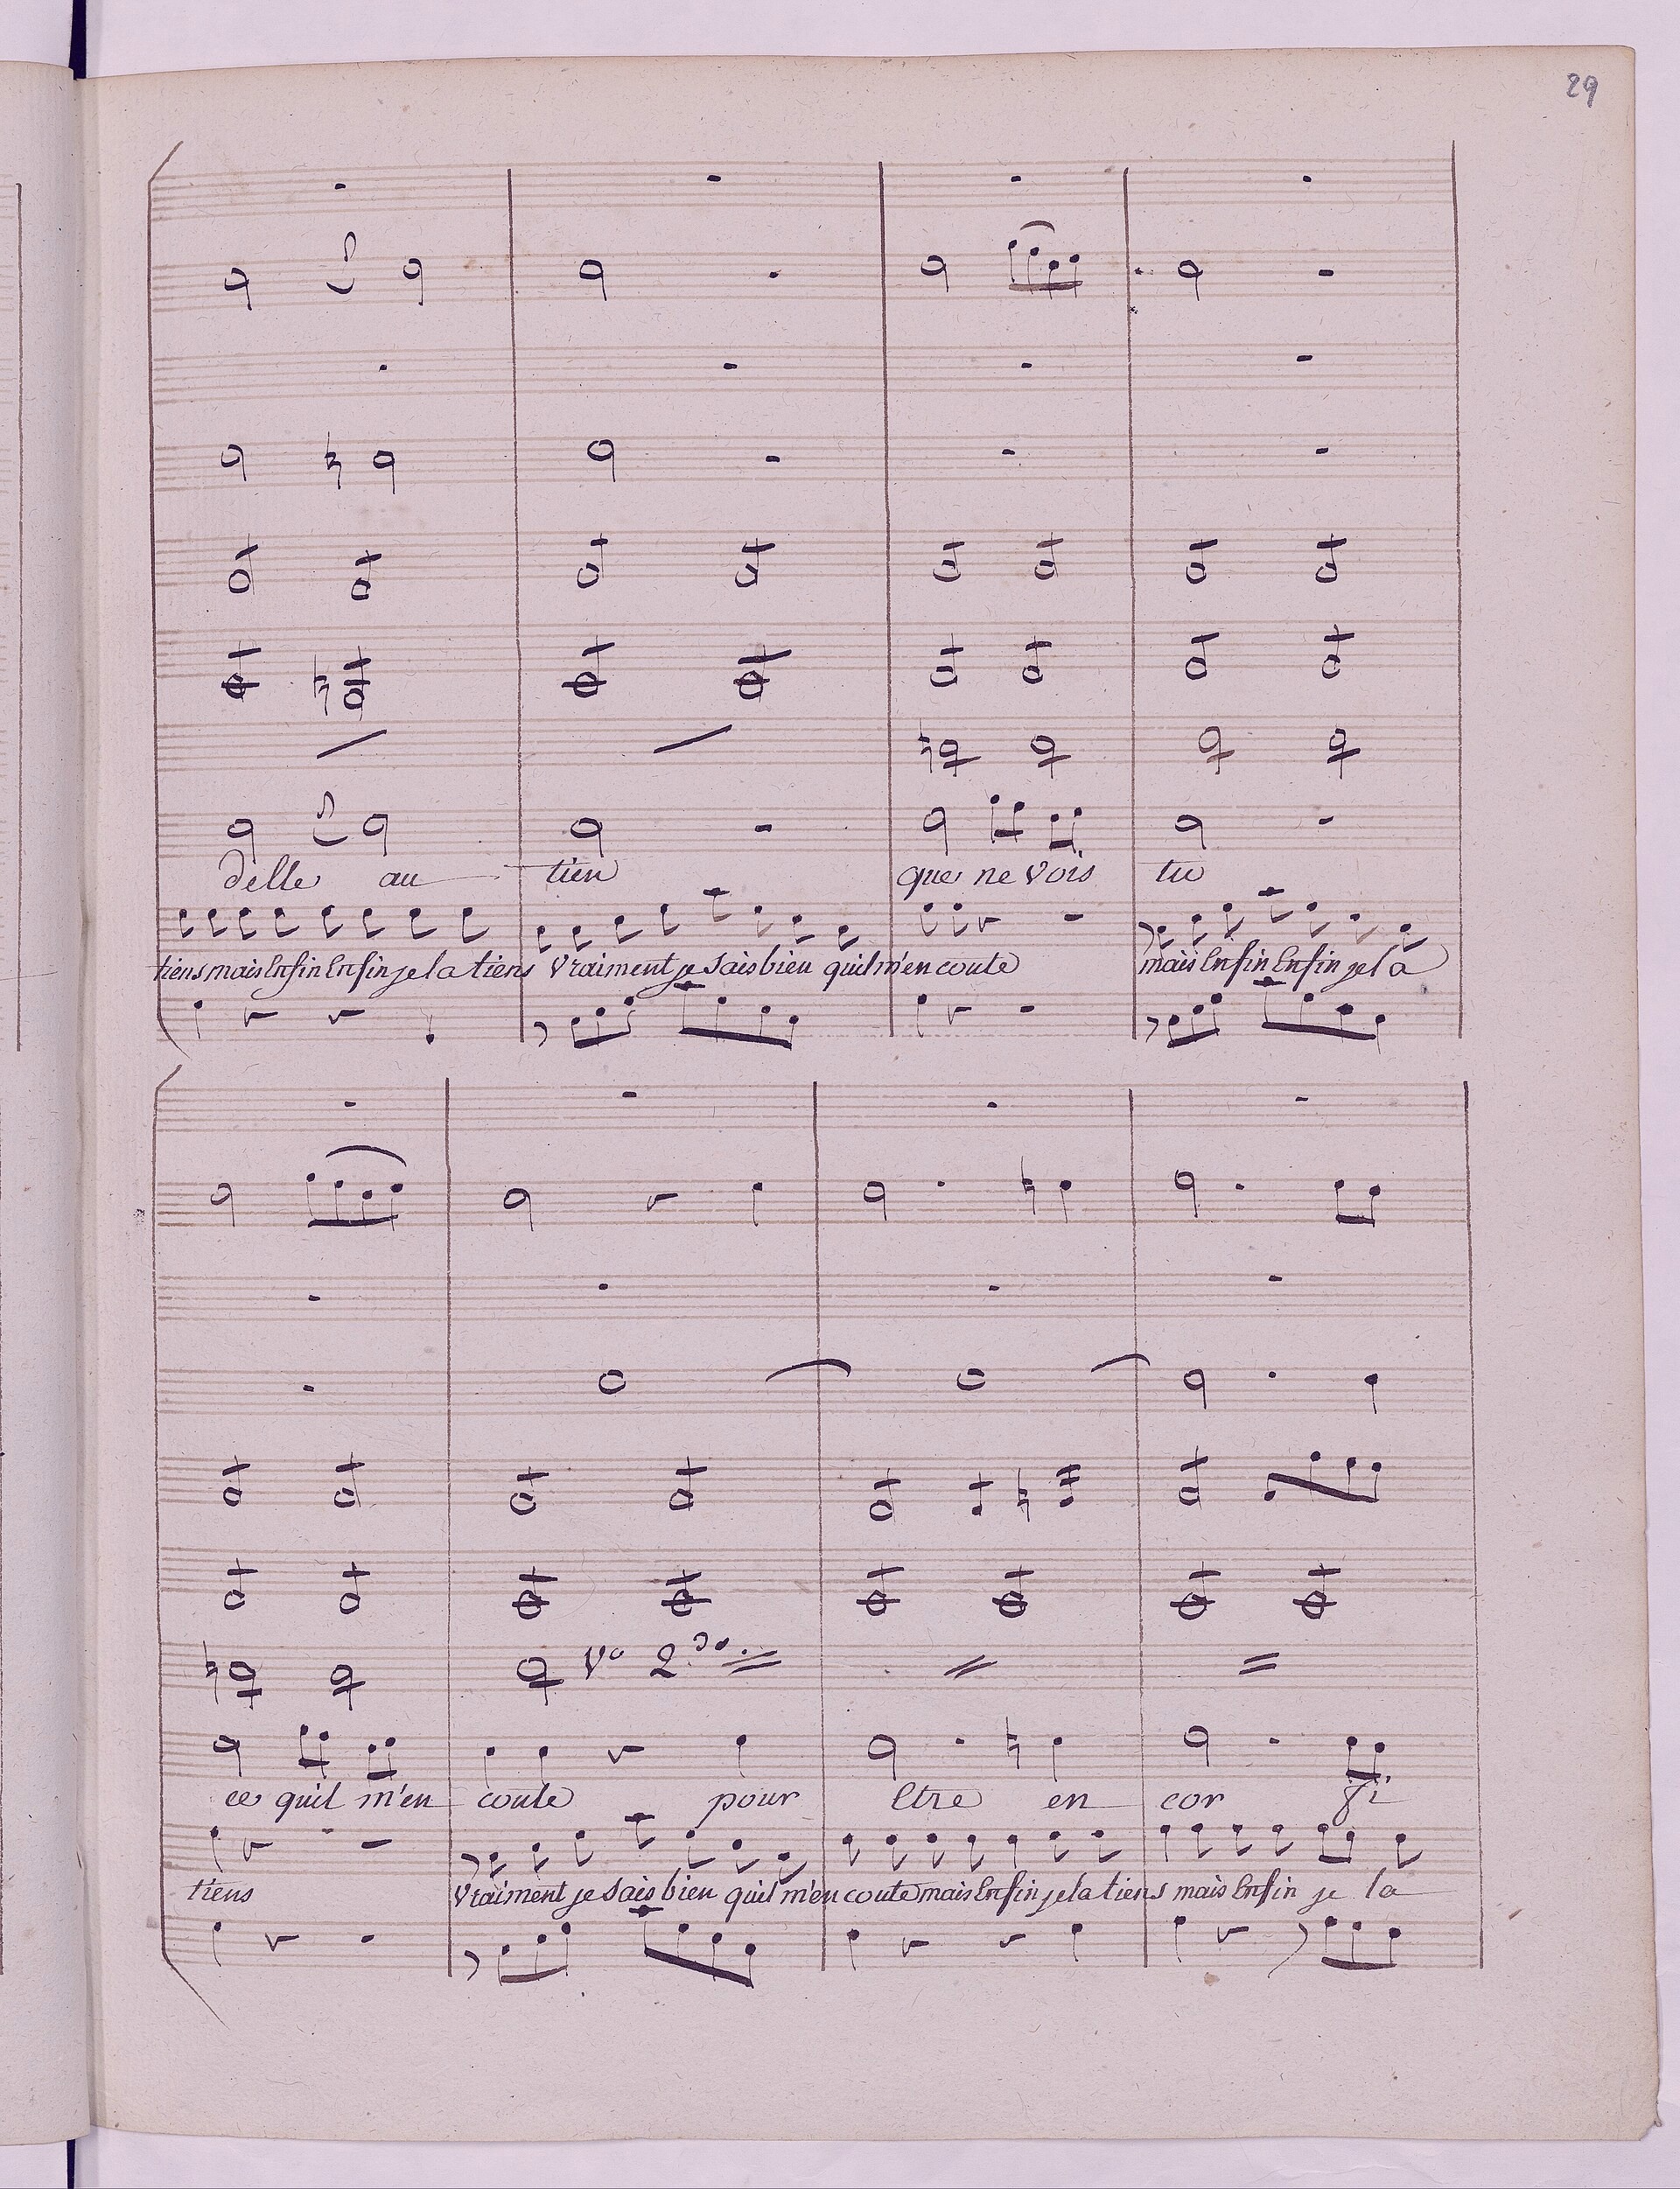 29
delle au tien que ne vois tu
tiens mais Enfin Enfin je la tiens Vraiment je sais bien quil m'en coute mais Enfin Enfin je la
Vo 2do
ce quil m'en coute pour Etre en cor fi
tiens Vraiment je sais bien quil m'en coute mais Enfin je la tiens mais Enfin je la